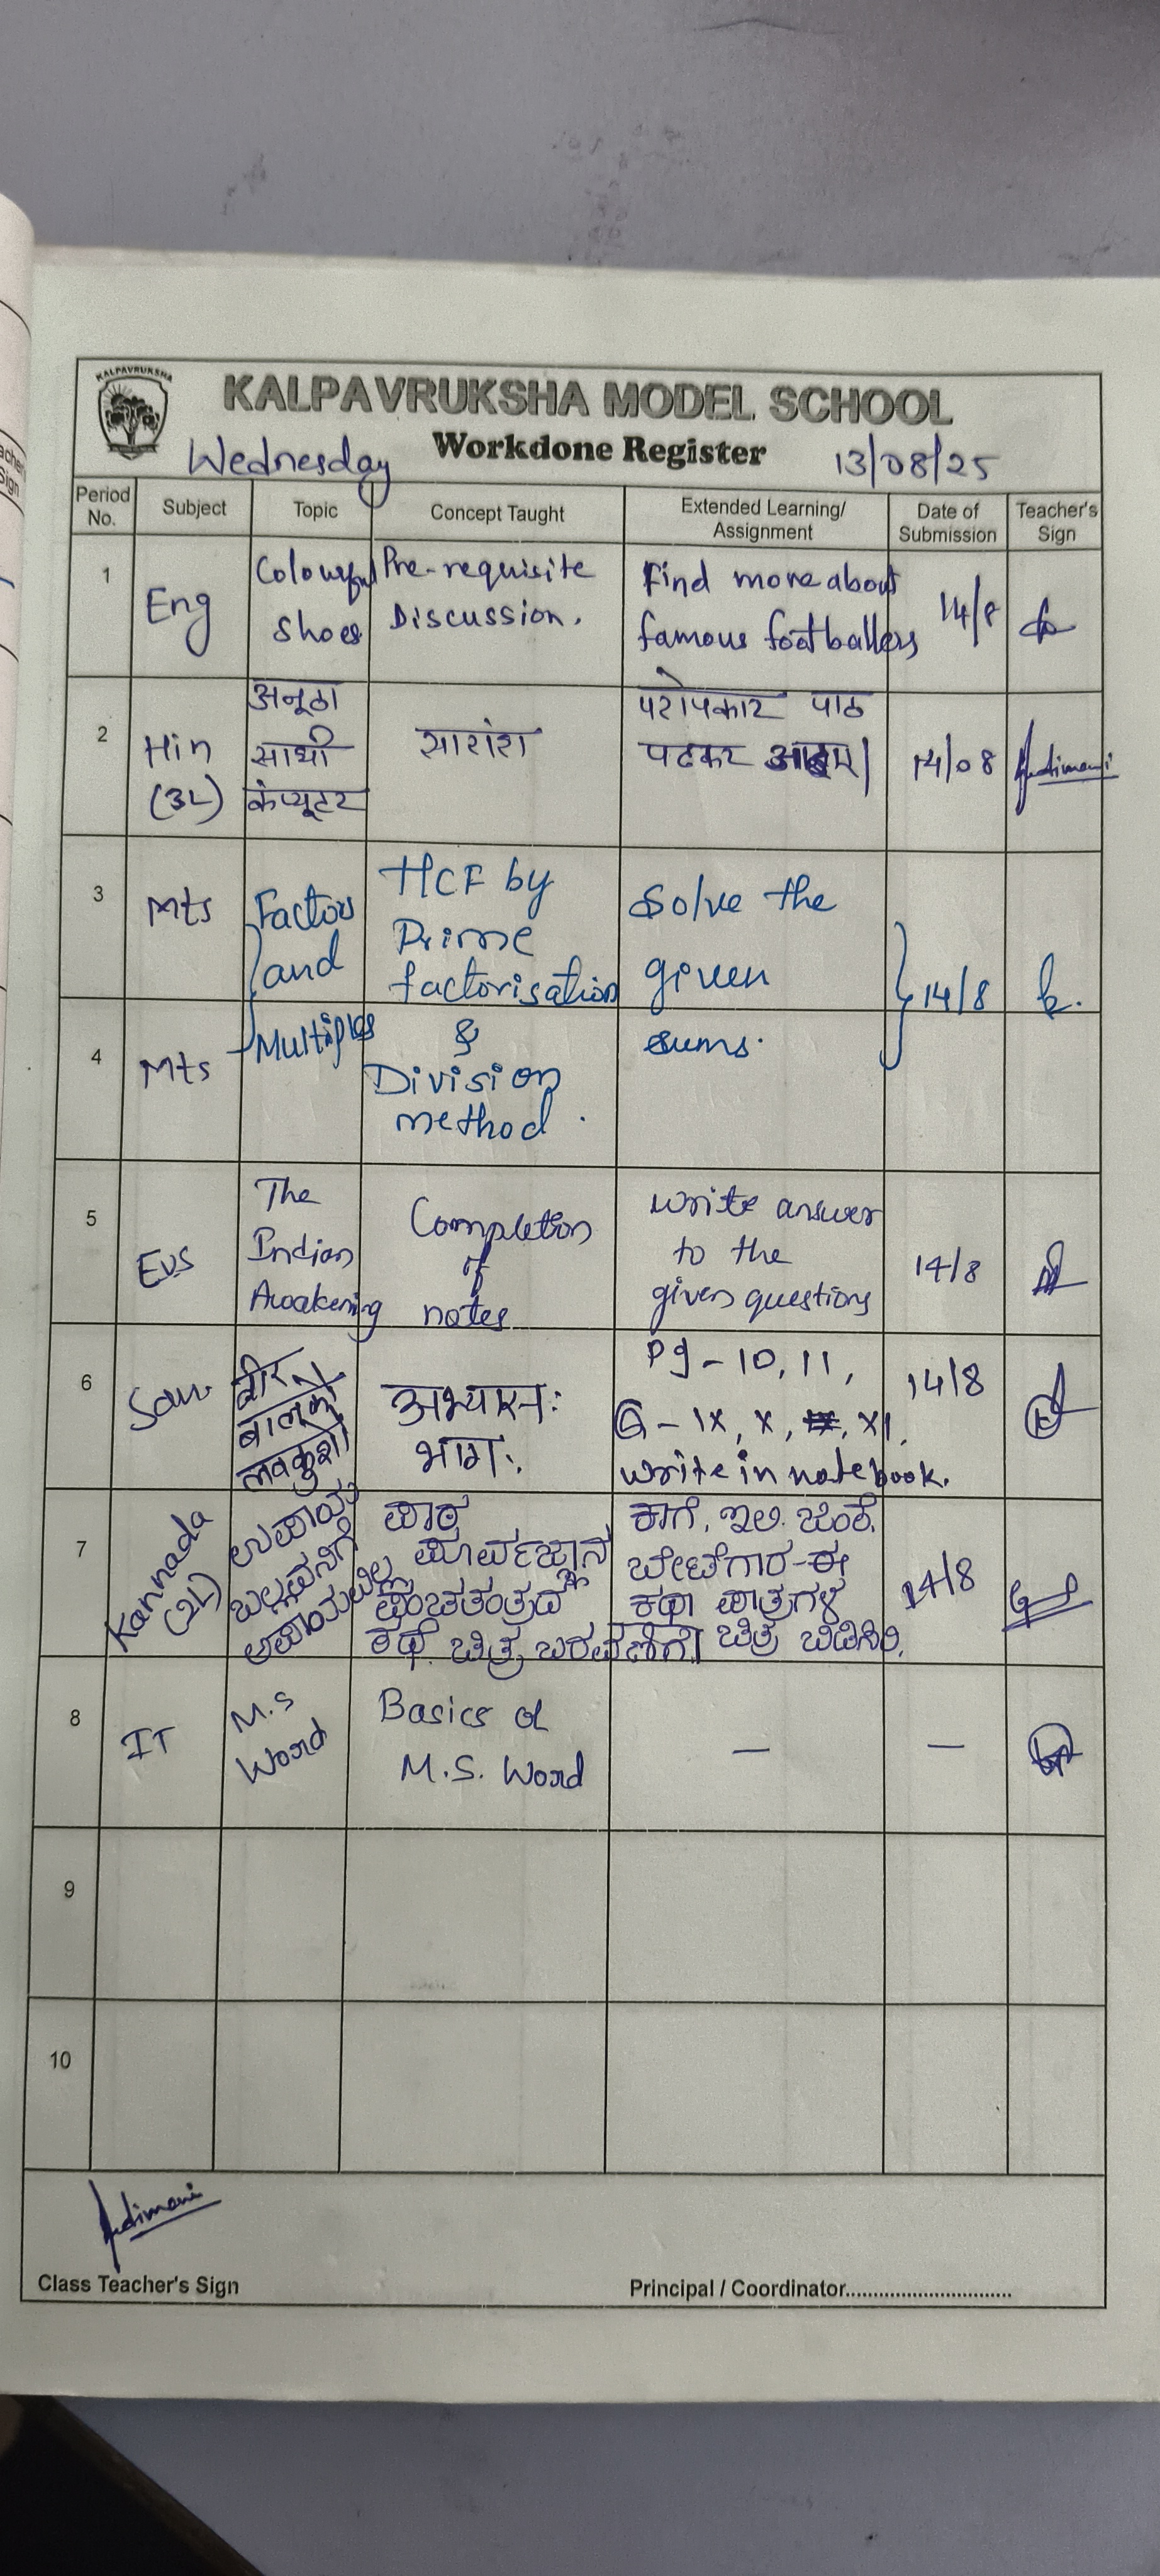 KALPAVRUKSHA
KALPAVRUKSHA MODEL SCHOOL
Wednesday Workdone Register 13/08/25
Period No. Subject Topic Concept Taught Extended Learning/ Assignment Date of Submission Teacher's Sign
1 Eng Colourful Shoes Pre-requisite Discussion. Find more about famous footballers 14/8
2 Hin (3L) अनूठा साथी कंप्यूटर सारांश परोपकार पाठ पढकर 14/08
3 Mts Factors and HCF by Prime factorisation Solve the given 14/8
4 Mts Multiples & Division method. sums.
5 EVS The Indian Awakening Completion of notes write answer to the given questions 14/8
6 San वीर बालकौ लवकुशौ अभ्यास: भाग: Pg - 10, 11, Q - IX, X, XI. write in notebook. 14/8
7 Kannada (2L) ಉಪಾಯ ಬಲ್ಲವನಿಗೆ ಅಪಾಯವಿಲ್ಲ ಪಾಠ ಪೂರ್ವಜ್ಞಾನ ಪಂಚತಂತ್ರದ ಕಥೆ. ಚಿತ್ರ ಬರವಣಿಗೆ. ಕಾಗೆ, ಇಲಿ. ಜಿಂಕೆ. ಬೇಟೆಗಾರ-ಈ ಕಥಾ ಪಾತ್ರಗಳ ಚಿತ್ರ ಬಿಡಿಸಿರಿ. 14/8
8 IT M.S Word Basics of M.S. Word — —
9
10
Class Teacher's Sign Principal / Coordinator..............................